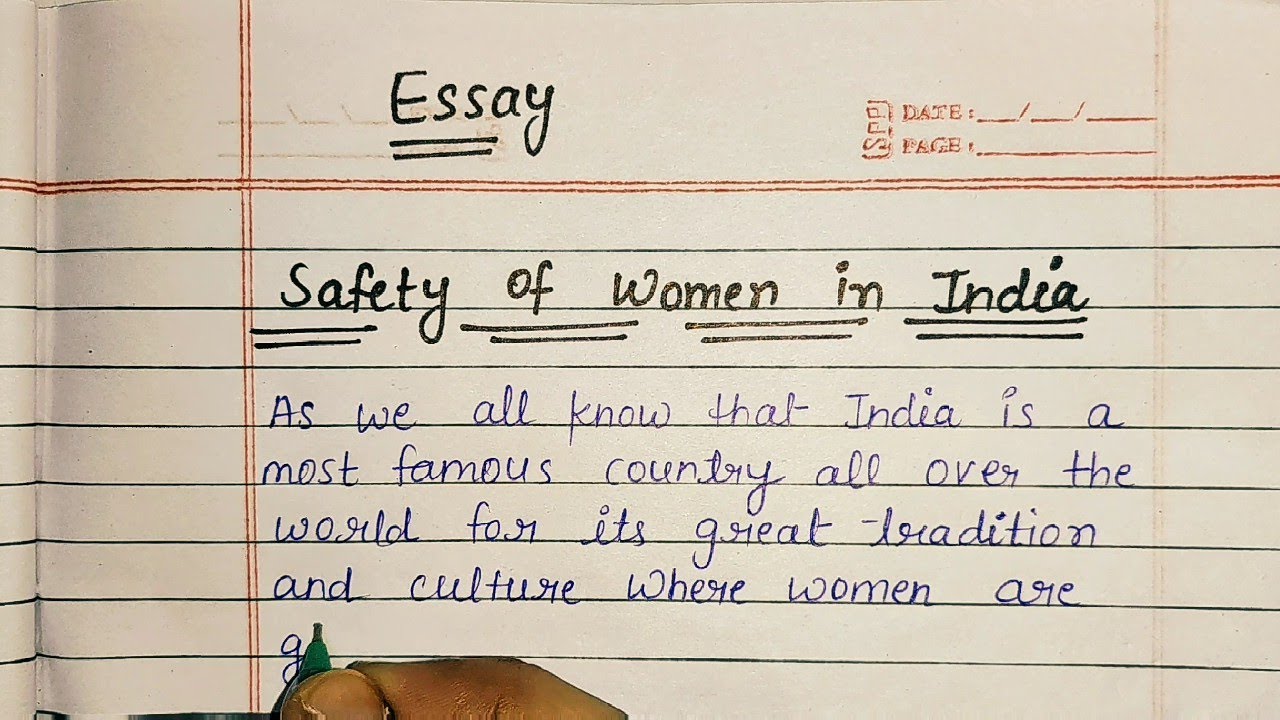 Essay
DATE: __/__/____
PAGE: ________
Safety of Women in India
As we all know that India is a
most famous country all over the
world for its great tradition
and culture where women are
g